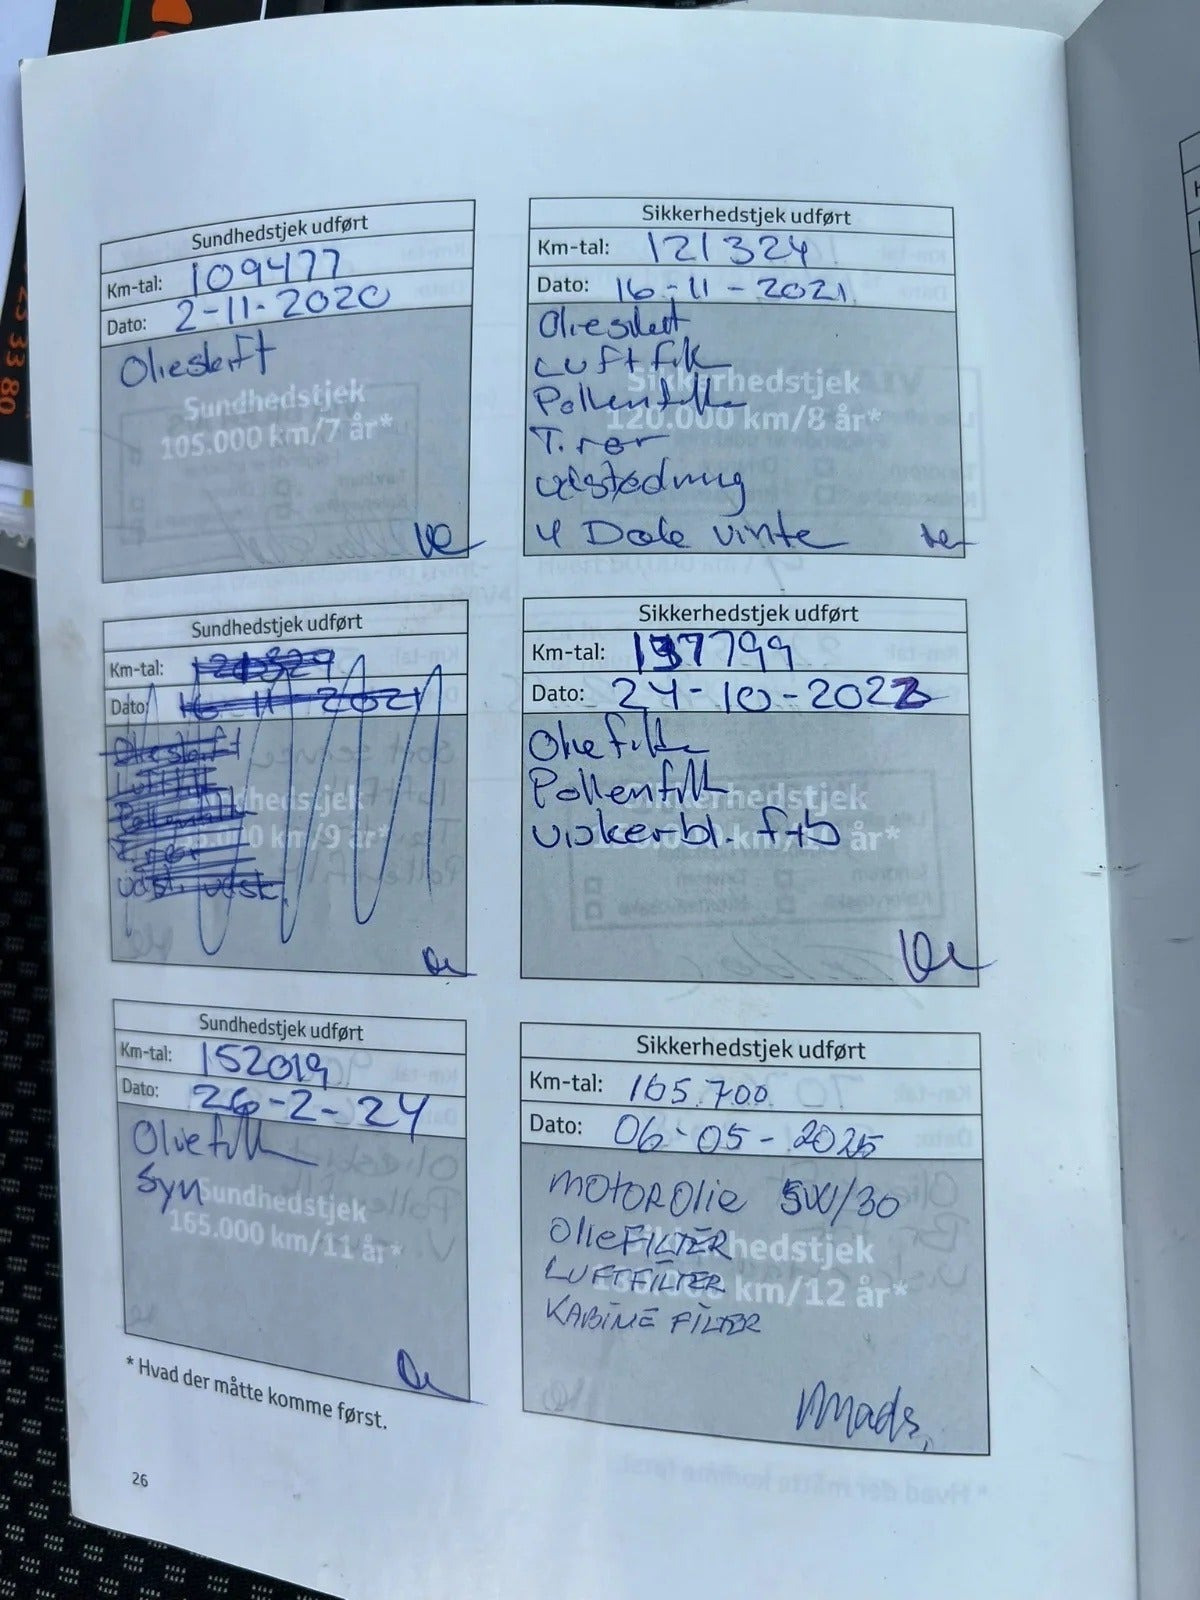 Sundhedstjek udført
Km-tal: 109477
Dato: 2-11-2020
Olieskift
Sundhedstjek
105.000 km/7 år*
Sikkerhedstjek udført
Km-tal: 121324
Dato: 16-11-2021
Olieskift
Luftfilt
Sikkerhedstjek
Pollenfilt
120.000 km/8 år*
T. rør
udstødning
4 Dæk vinte
Sundhedstjek udført
Km-tal:
Dato: 16-11-2021
Olieskift
Luftfilt
Pollenfilt
km/9 år*
Sikkerhedstjek udført
Km-tal: 137799
Dato: 24-10-2023
Oliefilt
Pollenfilt
Sikkerhedstjek
viskerbl. f+b
år*
Sundhedstjek udført
Km-tal: 152019
Dato: 26-2-24
Oliefilt
Syn
Sundhedstjek
165.000 km/11 år*
Sikkerhedstjek udført
Km-tal: 165.700
Dato: 06-05-2025
MOTOROlie 5W/30
OlieFILTER
LUFTFILTER
km/12 år*
KABINE FILTER
Mads,
* Hvad der måtte komme først.
26
33 80